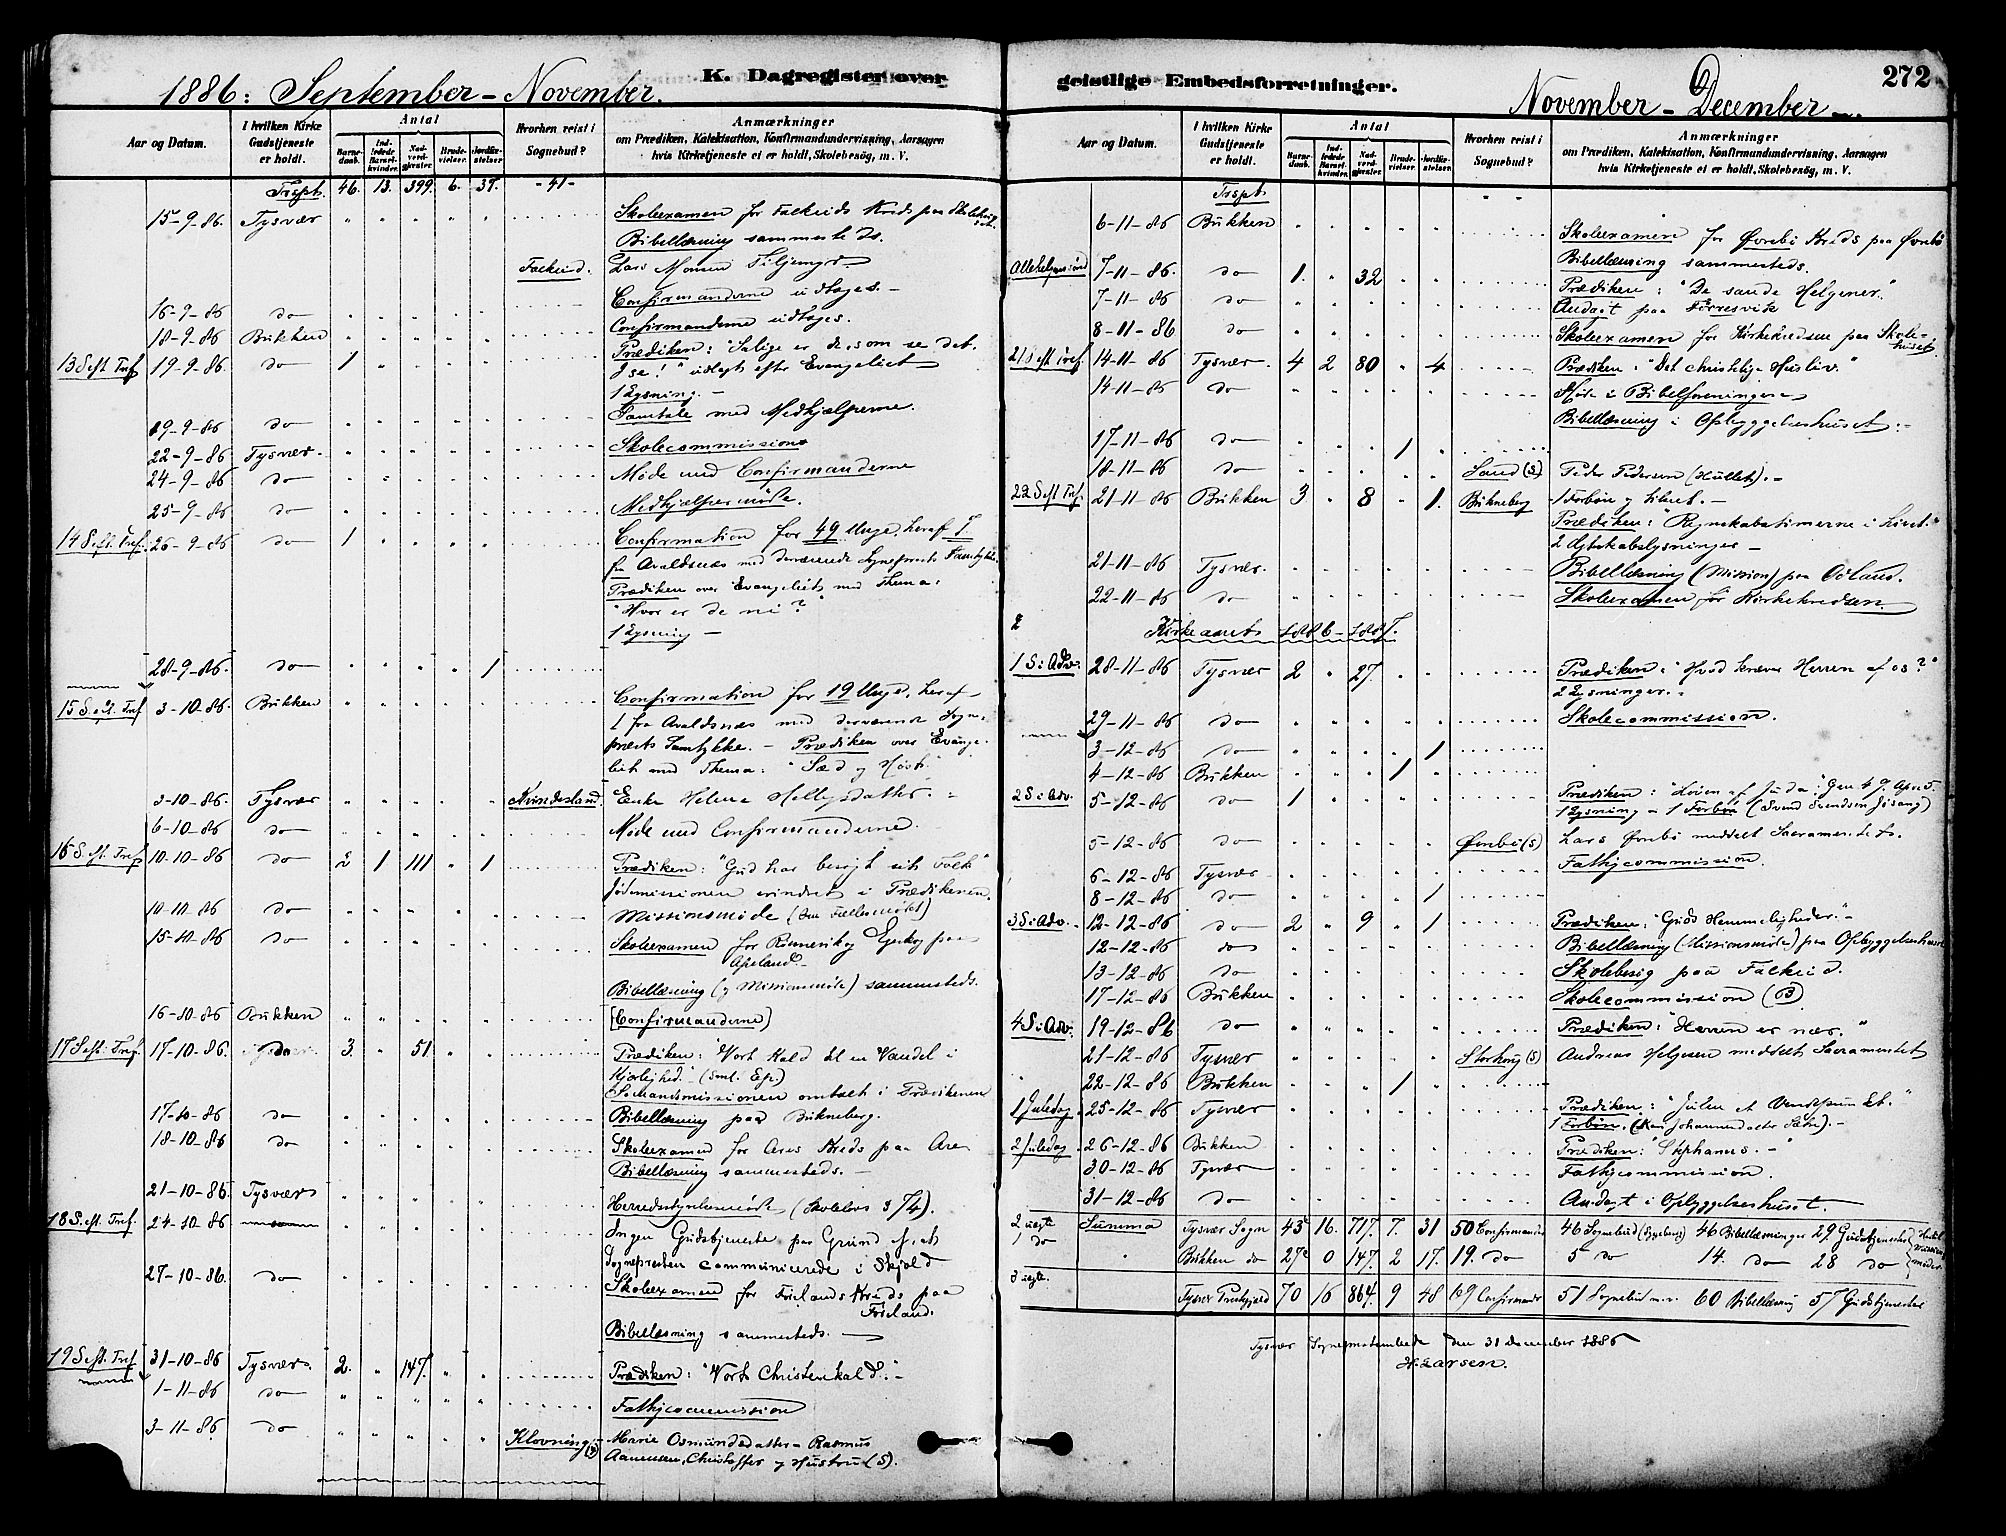 K. Dagregister over geistlige Embedsforretninger. 272
1886: September – November.
November – December
Aar og Datum. I hvilken Kirke Gudstjeneste er holdt. Antal Barnedaab. Indledede Barselkvinder. Nadverdgjæster. Brudevielser. Jordfæstelser. Hvorhen reist i Sognebud? Anmærkninger om Prædiken, Katekisation, Konfirmandundervisning, Aarsagen hvis Kirketjeneste ei er holdt, Skolebesøg, m. V.
Trspt. 46. 13. 399. 6. 37. -41-
15-9-86. Tysvær Skoleexamen for Falkeids Kreds paa
Bibellæsning sammesteds.
Falkeid. Lars Monsen
16-9-86 do Confirmanderne udtages. –
18-9-86 Bukken Confirmanderne udtages.
13 S eft Tref 19-9-86. do 1 Prædiken: "Salige er de, som se det
I se!" udlagt efter Evangeliet
1 Lysning. –
19-9-86 do Samtale med Medhjælperne.
22-9-86 Tysvær. Skolecommission
24-9-86 do Møde med Confirmanderne
25-9-86 do Medhjælpermøde.
14 S. eft. Tref. 26-9-86 do 1 Confirmation for 49 Unge, heraf 1
fra Avaldsnæs med derværende Sognepræsts Samtykke.
Prædiken over Evangeliets med Thema:
"Hvor er de ni?"
1 Lysning –
28-9-86. do 1
15 S. eft. Tref 3-10-86. Bukken Confirmation for 19 Unge, heraf
1 fra Avaldsnæs med derværende Sogne-
præsts Samtykke. – Prædiken over Evange-
liet med Thema: "Sæd og Høst."
3-10-86. Tysvær Kvindesland Enke Helene
6-10-86 do Møde med Confirmanderne.
16 S. eft. Tref 10-10-86 do 2 1 111 1 Prædiken: "Gud har besøgt sit Folk"
Jødemissionen erindret i Prædikenen.
10-10-86 do Missionsmøde
15-10-86 do Skoleexamen for
Apeland. –
Bibellæsning (og Missionsmøde) sammesteds.
16-10-86 Bukken (Confirmanderne)
17 S eft. Tref. 17-10-86. do 3. 51 Prædiken: "Vort Kald til en Vandel i
Kjærlighed." (Sml. Ep.)
Sømandsmissionen omtalt i Prædikenen
17-10-86 do Bibellæsning paa Bukneberg.
18-10-86 do Skoleexamen for Ares Kreds paa Are
Bibellæsning sammesteds. –
21-10-86. Tysvær Herredsstyrelsesmøde (Skolelovs § 74).
18 S. eft. Tref. 24-10-86 Ingen Gudstjeneste paa Grund af, at
Sognepresten communicerede i Skjold
27-10-86. do Skoleexamen for Førlands Kreds paa
Førland.
Bibellæsning sammesteds. –
19 S eft. Tref. 31-10-86 Tysvær. 2. 147. Prædiken: "Vort Christenkald". –
1-11-86 do Fattigcommission
3-11-86 do Klovning (2) Marie Osmundsdatter – Rasmus
Aanensen, Christoffer og Hustru (S).
Aar og Datum. I hvilken Kirke Gudstjeneste er holdt. Antal Barnedaab. Indledede Barselkvinder. Nadverdgjæster. Brudevielser. Jordfæstelser. Hvorhen reist i Sognebud? Anmærkninger om Prædiken, Katekisation, Konfirmandundervisning, Aarsagen hvis Kirketjeneste ei er holdt, Skolebesøg, m. V.
Trspt.
6-11-86 Bukken Skoleexamen for Øvrebø Kreds paa Øvrebø
Bibellæsning sammesteds.
Allehelgensønd 7-11-86. do 1. 32 Prædiken: "De sande Helgener."
7-11-86 do Andagt paa Førresvik
8-11-86 do Skoleexamen for Kirkekredsen paa Skole-
huset.
21 S eft Tref. 14-11-86 Tysvær. 4 2 80 4 Prædiken: "Det christelige Husliv."
14-11-86 do Møde i Bibelforeningen
Bibellæsning i Opbyggelseshuset. –
17-11-86 do 1
18-11-86 do Sand (S) Peder Pedersen (Hullet). –
22 S eft Tref. 21-11-86 Bukken 3 8 1. Bukneberg 1 Forbøn
Prædiken: "Regnskabstimerne i Livet."
2 Ægteskabslysninger –
21-11-86 Tysvær. Bibellæsning (Mission) paa
22-11-86 do Skoleexamen for Kirkekredsen.
Kirkeaaret 1886–1887.
1 S. i Adv. 28-11-86 Tysvær 2 27. Prædiken: "Hvad kræver Herren af os?"
2 Lysninger. –
29-11-86 do Skolecommission.
3-12-86 do 1
4-12-86 Bukken 1
2 S. i Adv. 5-12-86 do 1 Prædiken: "Løven af Juda". Gen 49. Apoc 5.
1 Lysning – 1 Forbøn (Svend Svendsen Jøsang)
5-12-86 do Øvrebø (S) Lars Øvrebø meddelt Sacramentet.
6-12-86 Tysvær Fattigcommission.
8-12-86 do 1
3 S. i Adv. 12-12-86 do 2 9 1 Prædiken: "Guds Hemmeligheder." –
12-12-86 do Bibellæsning (Missionsmøde) paa Opbyggelseshuset
13-12-86 do Skolebesøg paa Falkeid.
17-12-86 Bukken Skolecommission (B)
4 S. i Adv. 19-12-86 do Prædiken: "Herren er nær."
21-12-86 Tysvær Andreas Helgesen meddelt Sacramentet
22-12-86 Bukken 1
1 Juledag 25-12-86 Tysvær Prædiken: "Julen et Vendepunkt."
1 Forbøn.
2 Juledag 26-12-86 Bukken Prædiken: "Stephanus". –
30-12-86 Tysvær Fattigcommission.
31-12-86 do Andagt i Opbyggelseshuset.
2 uegte Summa Tysvær Sogn 43 16. 717. 7. 31 50 Confirmander 46 Sognebud 46 Bibellæsninger 29 Gudstjenester
1 do Bukken do 27 0 147. 2 17. 19. do 5 do 14. do 28 do
3 uegte. Tysvær Prestegjeld 70 16 864. 9 48 69 Confirmander 51 Sognebud 60 Bibellæsning 57 Gudstjenester
Tysvær Sogneprestembede den 31 December 1886
H. Larsen.